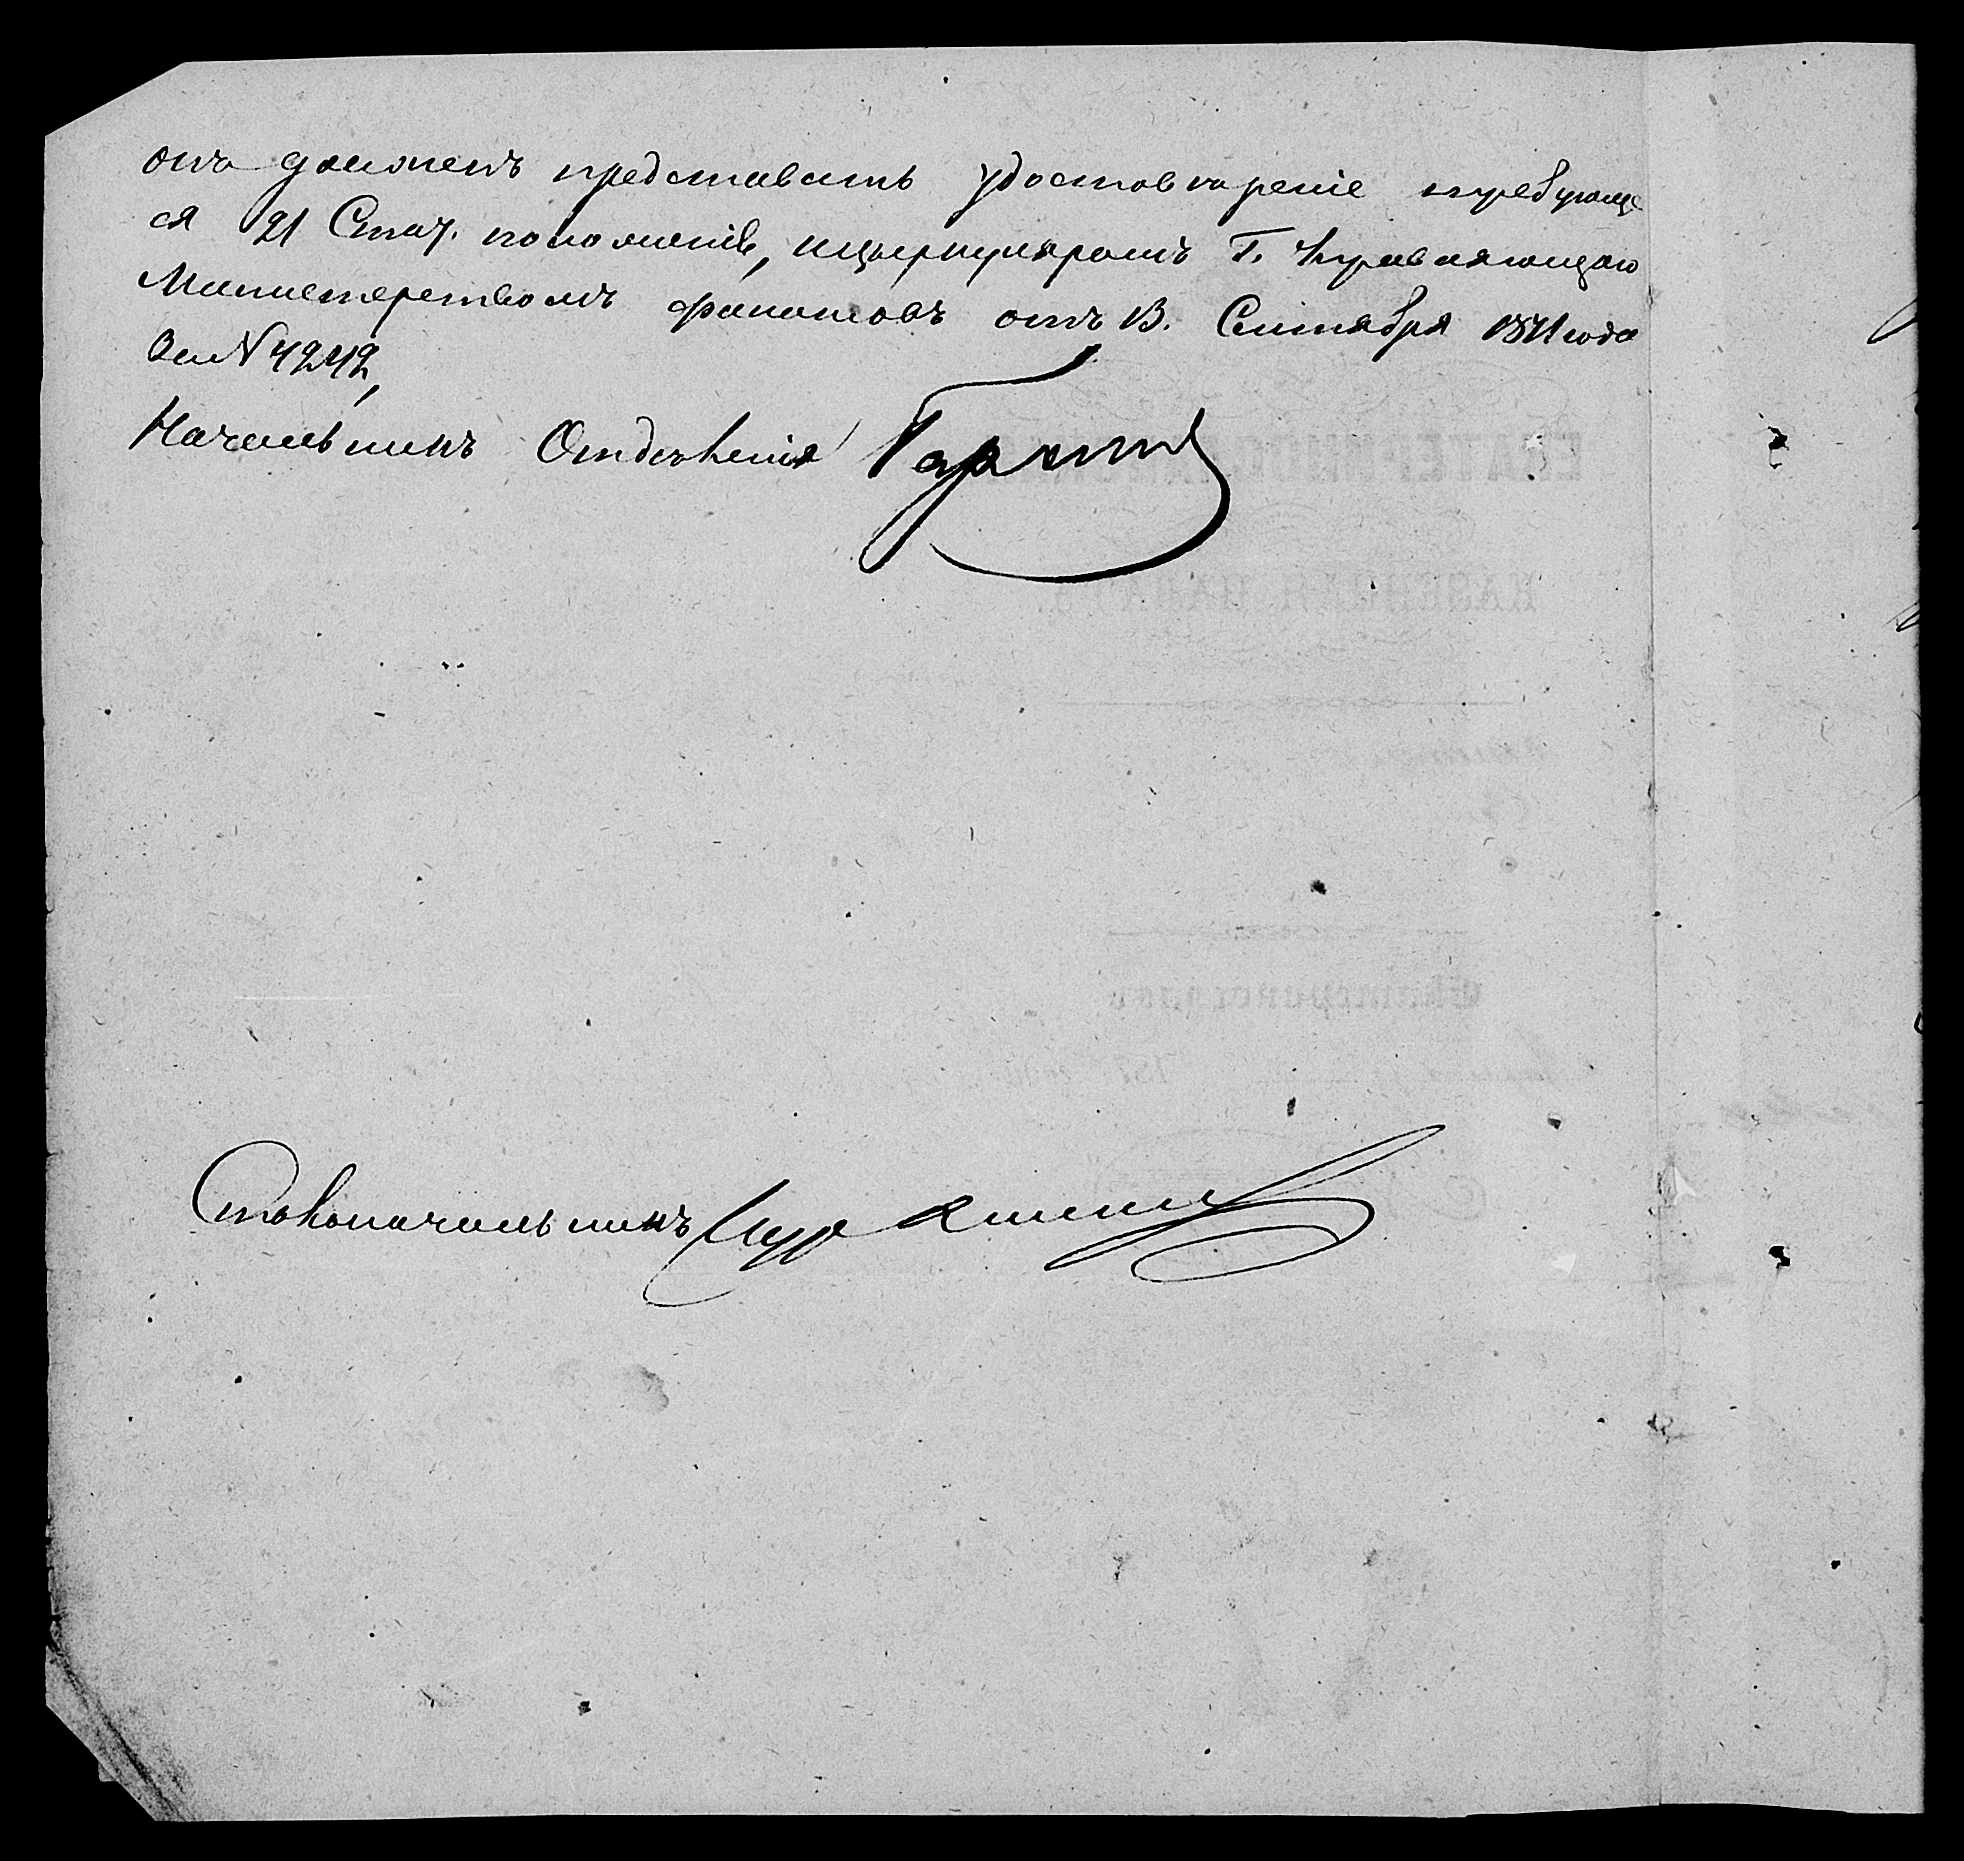 онъ долженъ представить удостовѣреніе требующе
ся 21 Стат. положенія, ициркуляромъ Г. Управляющаго
Министерствомъ финансовъ отъ 13. Сентября 1871 года
За № 4242,
Начальникъ Отдѣленія
Столоначальникъ